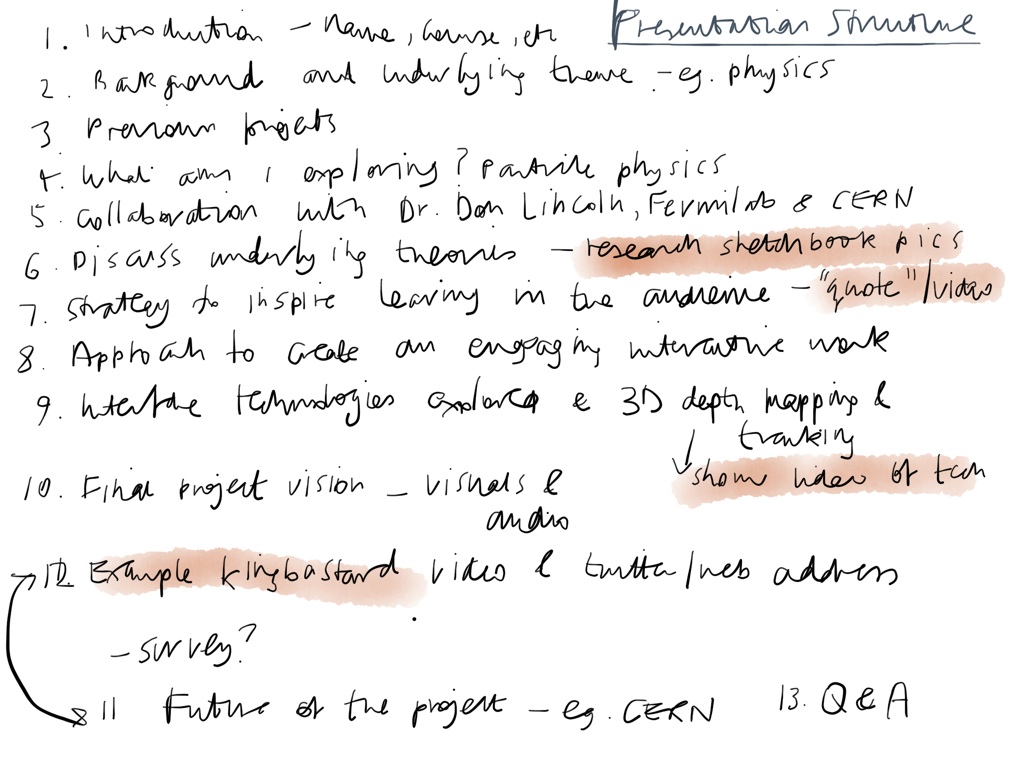 Presentation Structure
1. Introduction – Name, Course, etc
2. Background and underlying theme – eg. physics
3. Previous projects
4. What am I exploring? Particle physics
5. Collaboration with Dr. Don Lincoln, Fermilab & CERN
6. Discuss underlying theories – research sketchbook pics
7. Strategy to inspire learning in the audience – "quote"/video
8. Approach to create an engaging interactive work
9. Interface technologies explored & 3D depth mapping &
tracking
show video of tech
10. Final project vision – visuals &
audio
12. Example kingbastard video & twitter/web address
– survey?
11 Future of the project – eg. CERN
13. Q&A